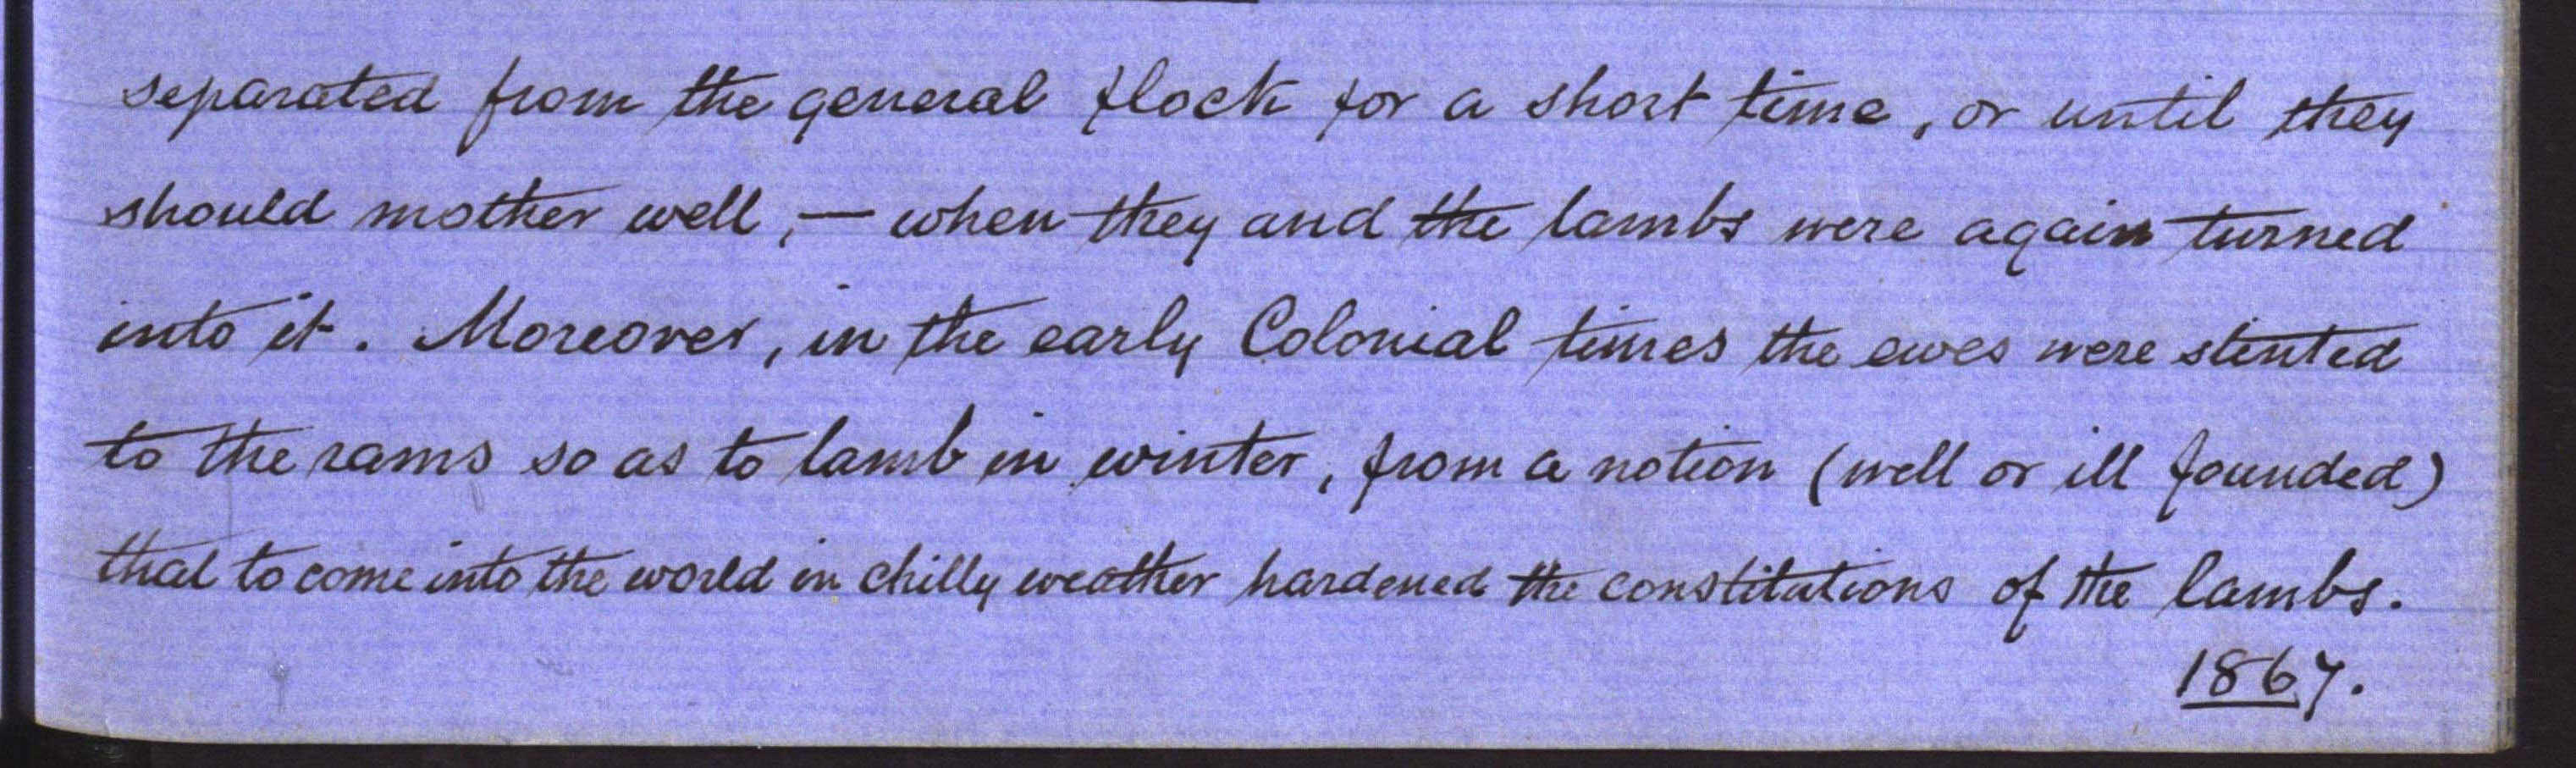 separated from the general flock for a short time, or until they
should mother well, — when they and the lambs were again turned
into it. Moreover, in the early Colonial times the ewes were stinted
to the rams so as to lamb in winter, from a notion (well or ill founded)
that to come into the world in chilly weather hardened the constitutions of the lambs.
1867.